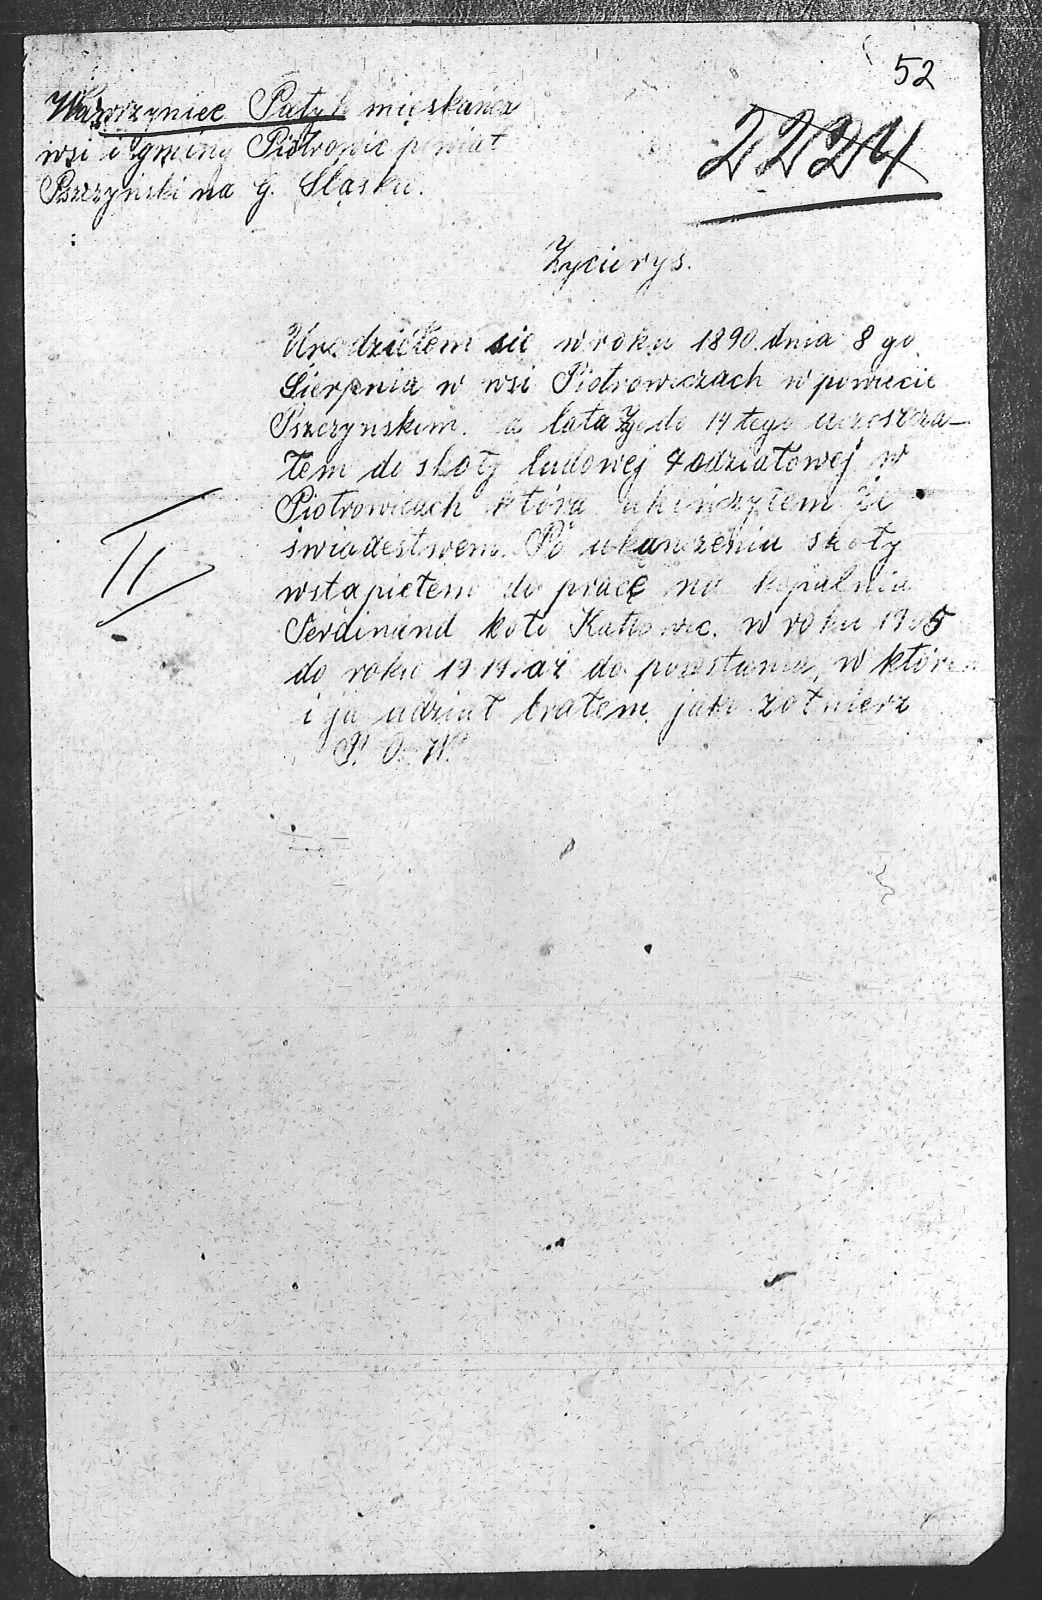 52
2224
Wawrzyniec Patyk mieszkańca
wsi i gminy Piotrowic powiat
Pszczyński na G. Śląsku.
Życierys.
Urodziełem sie w roku 1890 dnia 8 go
Sierpnia w wsi Piotrowiczach w powiecie
Pszczynskim. a lata 7go do 14 tego uczeszcza-
łem do skoły ludowej 4 odziałowej w
Piotrowicach która ukończyłem ze
świadestwem. Po ukończeniu skoły
wstąpiełem do pracę na kopalnia
Ferdinand koło Kattowic. w roku 1905
do roku 1919. aż do powstania, w które
i ja udziat brałem jako żołnierz
P. O. W.
II